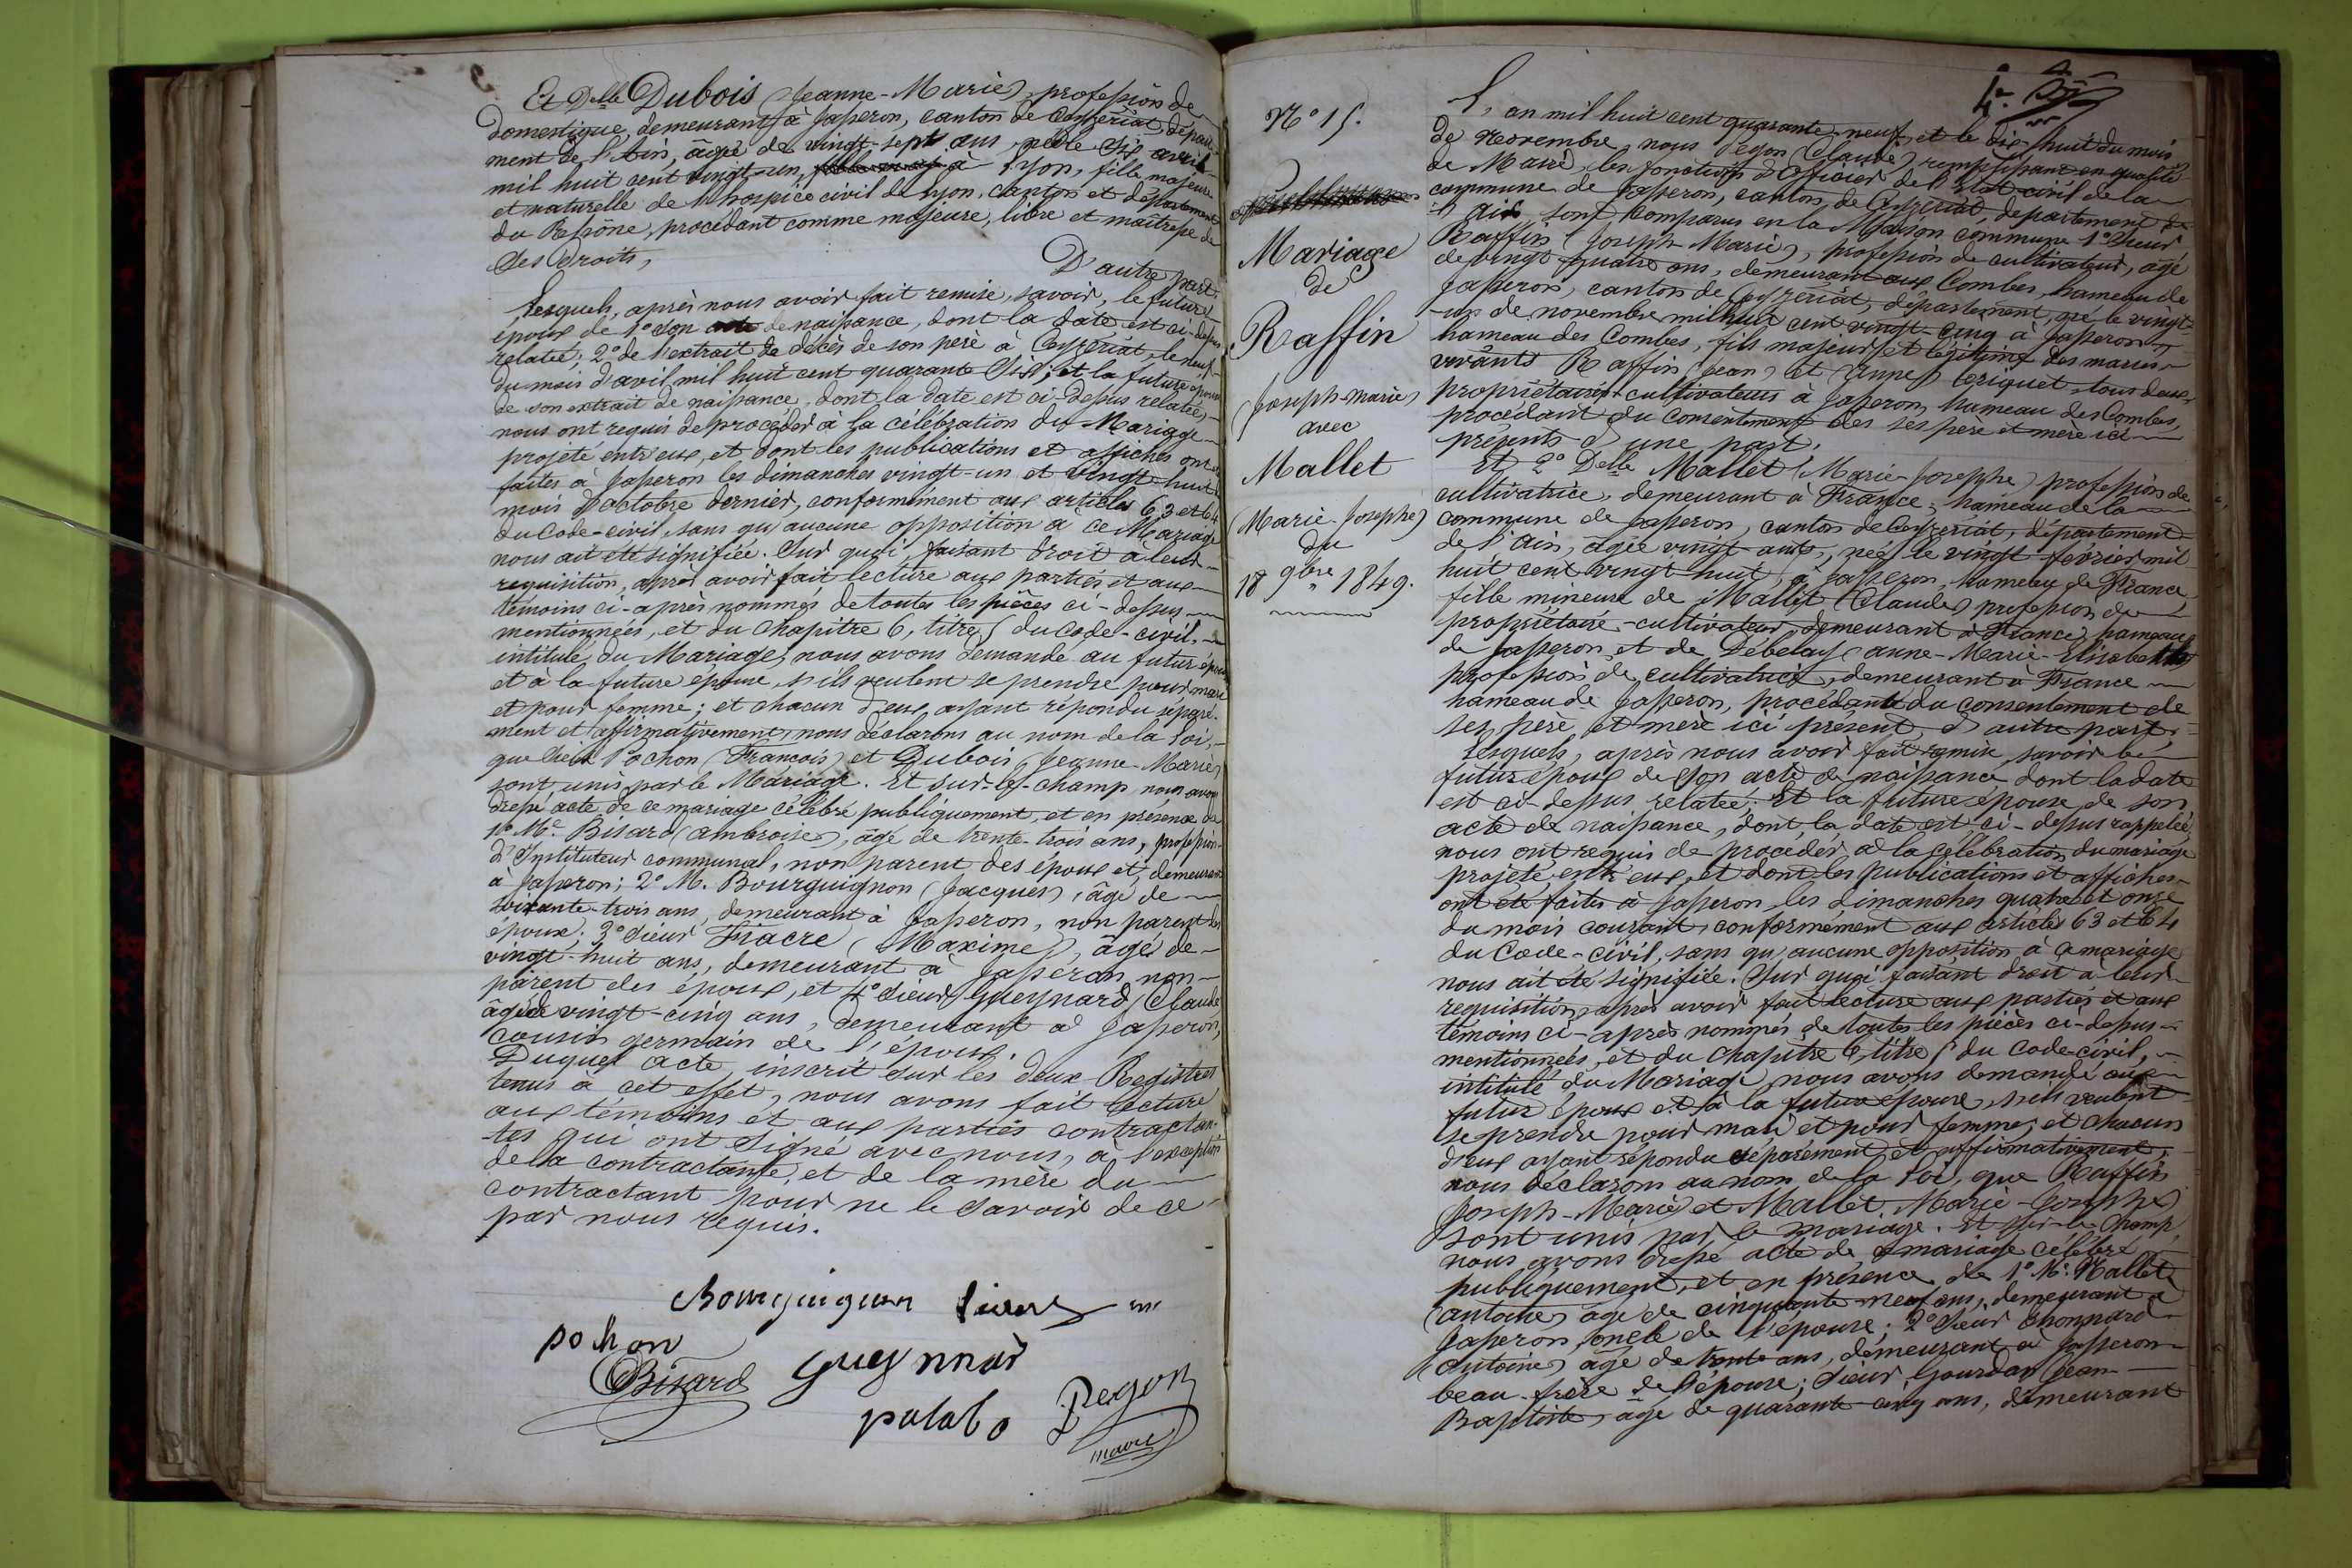 Et Delle Dubois (Jeanne-Marie), profession de
domestique, demeurant à Jasseron, canton de Ceyzériat, départe-
ment de l'Ain, âgée de vingt-sept ans née le six avril
mil huit cent vingt-un, à Lyon, fille majeure
et naturelle de l'hospice civil de Lyon, canton et département
du Rhône, procédant comme majeure, libre et maîtresse de
ses droits,
D'autre part.
Lesquels, après nous avoir fait remise, savoir, le futur
époux de 1° son acte de naissance, dont la date est ci-dessus
relatée; 2° de l'extrait de décès de son père à Ceyzériat, le neuf
du mois d'avril mil huit cent quarante six; et la future épouse
de son extrait de naissance, dont la date est ci-dessus relatée,
nous ont requis de procéder à la célébration du Mariage
projeté entr'eux, et dont les publications et affiches ont été
faites à Jasseron les dimanches vingt-un et vingt-huit
mois d'octobre dernier, conformément aux articles 63 et 64
du Code-civil, sans qu'aucune opposition à ce Mariage
nous ait été signifiée. Sur quoi, faisant droit à leur
requisition, après avoir fait lecture aux parties et aux
témoins ci-après nommés de toutes les pièces ci-dessus
mentionnées, et du chapitre 6, titre 5 du Code-civil,
intitulé du Mariage, nous avons demandé au futur époux
et à la future épouse, s'ils veulent se prendre pour mari
et pour femme; et chacun d'eux ayant répondu séparé-
ment et affirmativement, nous déclarons au nom de la loi,
que Pochon (François) et Dubois (Jeanne-Marie)
sont unis par le Mariage. Et sur-le-champ, nous avons
dressé acte de ce mariage célébré publiquement, et en présence de
1° Mr. Bisard (ambroise), âgé de trente-trois ans, profession
d'Instituteur communal, non parent des époux et demeurant
à Jasseron; 2° M. Bourguignon (Jacques), âgé de
soixante-trois ans, demeurant à Jasseron, non parent des
époux; 3° sieur Fiacre (Maxime), âgé de
vingt-huit ans, demeurant à Jasseron, non
parent des époux, et 4° sieur Gueynard (Claude)
âgé de vingt-cinq ans, demeurant à Jasseron,
cousin germain de l'époux.
Duquel acte, inscrit sur les deux Registres
tenus à cet effet, nous avons fait lecture
aux témoins et aux parties contractan-
tes qui ont signé avec nous, à l'exception
de la contractante, et de la mère du
contractant pour ne le savoir de ce
par nous requis.
Bourguignon fiacre
pochon
Bisard Gueynard
Pegon
maire
N° 15.
Mariage
de
Raffin
(Joseph-marie)
avec
Mallet
(Marie-Josephe)
du
18 9bre 1849.
L'an mil huit cent quarante-neuf, et le dix-huit du mois
de Novembre, nous Pegon (Claude) remplissant en qualité
de Maire, les fonctions d'Officier de l'Etat civil de la
commune de Jasseron, canton de Ceyzériat, département de
l'Ain, sont comparus en la Maison commune 1° Sieur
Raffin (Joseph-Marie), profession de cultivateur, âgé
de vingt-quatre ans, demeurant aux Combes, hameau de
Jasseron, canton de Ceyzériat, département, né le vingt-
un de novembre mil huit cent vingt-cinq à Jasseron,
hameau des Combes, fils majeur et légitime des mariés
vivants Raffin (Jean) et (Anne) Ceriquet tous deux
propriétaires-cultivateurs à Jasseron, hameau des Combes,
procédant du consentement des ses père et mère ici
présents d'une part,
Et 2° Delle Mallet (Marie-Josephe) profession de
cultivatrice, demeurant à France, hameau de la
commune de Jasseron, canton de Ceyzériat, département
de l'Ain, âgée vingt-ans, née le vingt février mil
huit cent vingt-huit, à Jasseron, hameau de France,
fille mineure de Mallet (Claude) profession de
propriétaire-cultivateur, demeurant à France, hameau
de Jasseron et de Debelay (anne-Marie-Elisabeth)
profession de cultivatrice, demeurant à France
hameau de Jasseron, procédante du consentement de
ses père et mère ici présent, d'autre part,
Lesquels, après nous avoir fait remise, savoir le
futur époux de son acte de naissance dont la date
est ci-dessus relatée. Et la future épouse, de son
acte de naissance, dont la date est ci-dessus rappelée,
nous ont requis de procéder à la célébration du mariage
projeté entr'eux, et dont les publications et affiches
ont été faites à Jasseron, les dimanches quatre et onze
du mois courant, conformément aux articles 63 et 64
du Code-civil, sans qu'aucune opposition à ce mariage
nous ait été signifiée. Sur quoi faisant droit à leur
requisition, après avoir fait lecture aux parties et aux
témoins ci-après nommés de toutes les pièces ci-dessus
mentionnées, et du chapitre 6, titre 5 du Code civil,
intitulé du Mariage, nous avons demandé au
futur époux et à la future épouse, s'ils veulent
se prendre pour mari et pour femme; et chacun
d'eux ayant répondu séparément et affirmativement,
nous déclarons au nom de la loi, que Raffin
Joseph-Marie et Mallet Marie-Josephe
sont unis par le mariage. Et sur-le-champ,
nous avons dressé acte de ce mariage célébré
publiquement, et en présence de 1° Mr. Mallet
(antoine) âgé de cinquante-neuf ans, demeurant à
Jasseron, oncle de l'épouse; 2° sieur Chonnard
(antoine) âgé de trente ans, demeurant à Jasseron
beau-frère de l'épouse; sieur Gourdan (Jean-
Baptiste) âgé de quarante-cinq ans, demeurant